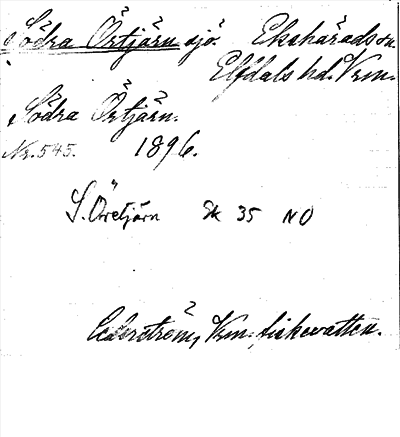 Södra Örtjärn sjö. Ekshärads sn.
Elfdals hd. Vrm.
Södra Örtjärn.
Nr. 545. 1896.
S. Öretjärn Ek 35 NO
Cederström, Vrm. fiskevatten.